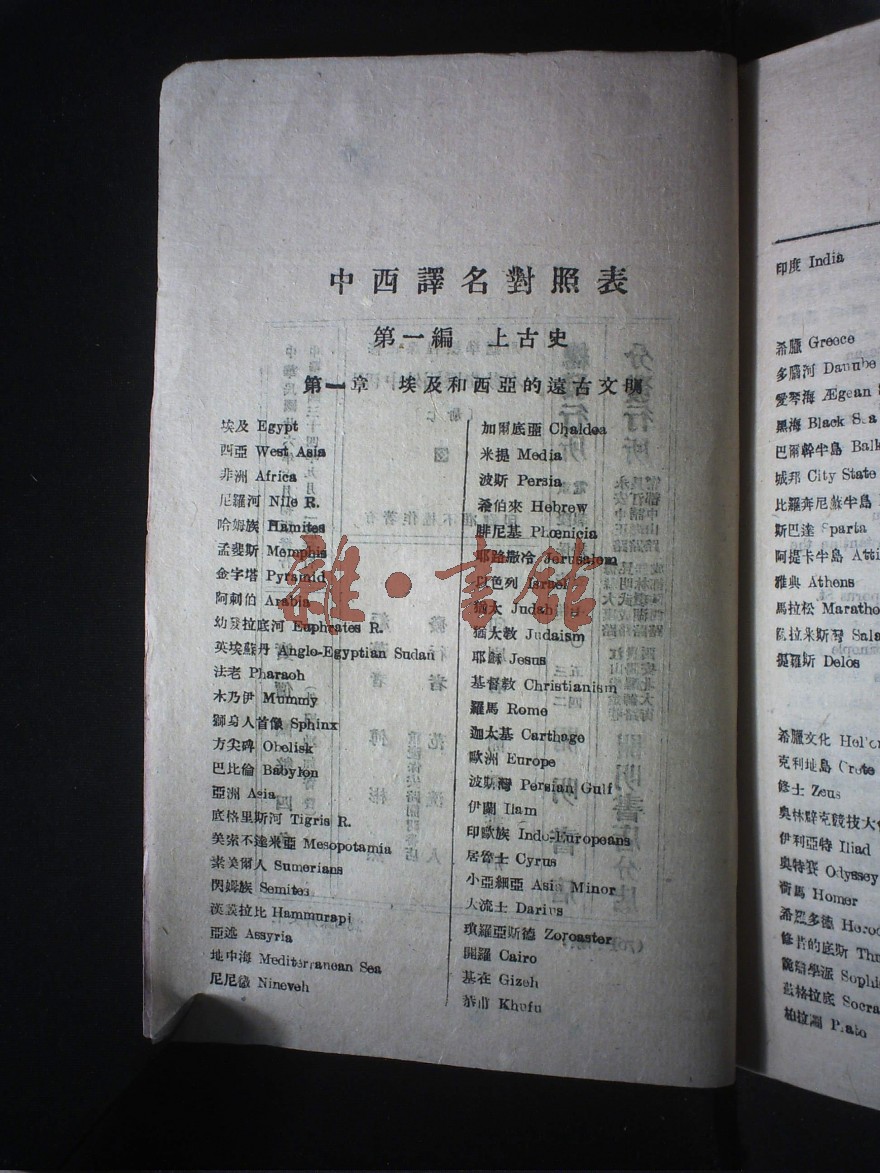 中西譯名對照表
第一編 上古史
第一章 埃及和西亞的遠古文明
埃及 Egypt
西亞 West Asia
非洲 Africa
尼羅河 Nile R.
哈姆族 Hamites
孟斐斯 Memphis
金字塔 Pyramid
阿剌伯 Arabia
幼發拉底河 Euphrates R.
英埃蘇丹 Anglo-Egyptian Sudan
法老 Pharaoh
木乃伊 Mummy
獅身人首像 Sphinx
方尖碑 Obelisk
巴比倫 Babylon
亞洲 Asia
底格里斯河 Tigris R.
美索不達米亞 Mesopotamia
素美爾人 Sumerians
閃姆族 Semites
漢義拉比 Hammurapi
亞述 Assyria
地中海 Mediterranean Sea
尼尼微 Nineveh
加爾底亞 Chaldea
米提 Media
波斯 Persia
希伯來 Hebrew
腓尼基 Phœnicia
耶路撒冷 Jerusalem
以色列 Israel
猶太 Judah
猶太教 Judaism
耶穌 Jesus
基督教 Christianism
羅馬 Rome
迦太基 Carthage
歐洲 Europe
波斯灣 Persian Gulf
伊蘭 Ilam
印歐族 Indo-Europeans
居魯士 Cyrus
小亞細亞 Asia Minor
大流士 Darius
瓊羅亞斯德 Zoroaster
開羅 Cairo
基在 Gizeh
Khufu
雜·書館
印度 India
希臘 Greece
多腦河 Danube
愛琴海 Ægean S
黑海 Black Sea
巴爾幹半島 Balk
城邦 City State
比羅奔尼蘇半島
斯巴達 Sparta
阿提卡半島 Atti
雅典 Athens
馬拉松 Maratho
拉米斯灣 Sala
提羅斯 Delos
希臘文化 Hel
克利地島 Crete
修士 Zeus
奧林匹克競技大
伊利亞特 Iliad
奧特賽 Odyssey
荷馬 Homer
希羅多德 Herod
修昔的底斯 Thu
詭辯學派 Sophi
蘇格拉底 Socra
柏拉圖 Plato